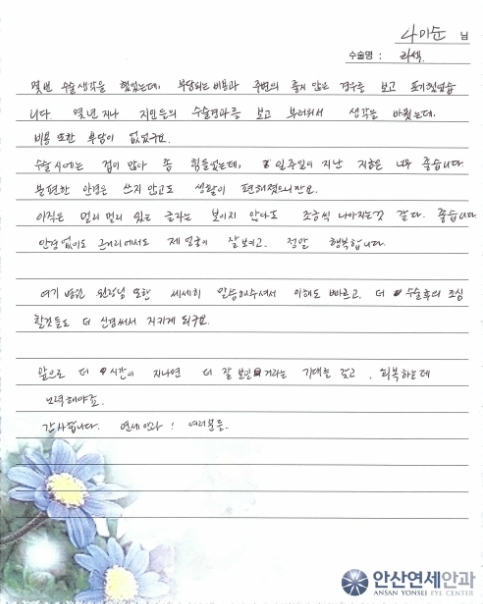 나미순 님
수술명 : 라섹
몇번 수술생각을 했었는데, 부담되는 비용과 주변의 좋지 않은 경우를 보고 포기했었습
니다. 몇년 지나 지인들의 수술결과를 보고 부러워서 생각을 바꿨는데,
비용 또한 부담이 없었구요.
수술시에는 겁이 많아 좀 힘들었는데, 일주일이 지난 지금은 너무 좋습니다.
불편한 안경은 쓰지 않고도 생활이 편해졌으니깐요.
아직은 멀리 멀리 있는 글자는 보이지 않아도 조금씩 나아지는것 같다. 좋습니다
안경 없이도 근거리에서도 제 얼굴이 잘 보이고. 정말 행복합니다.
여기 병원 원장님 또한 세세히 말씀해주셔서 이해도 빠르고, 더 수술후의 조심
할것들도 더 신경써서 지키게 되구요.
앞으로 더 시간이 지나면 더 잘 보일거라는 기대를 갖고, 회복하는데
노력해야죠.
감사합니다. 연세안과! 여러분들.
안산연세안과
ANSAN YONSEI EYE CENTER